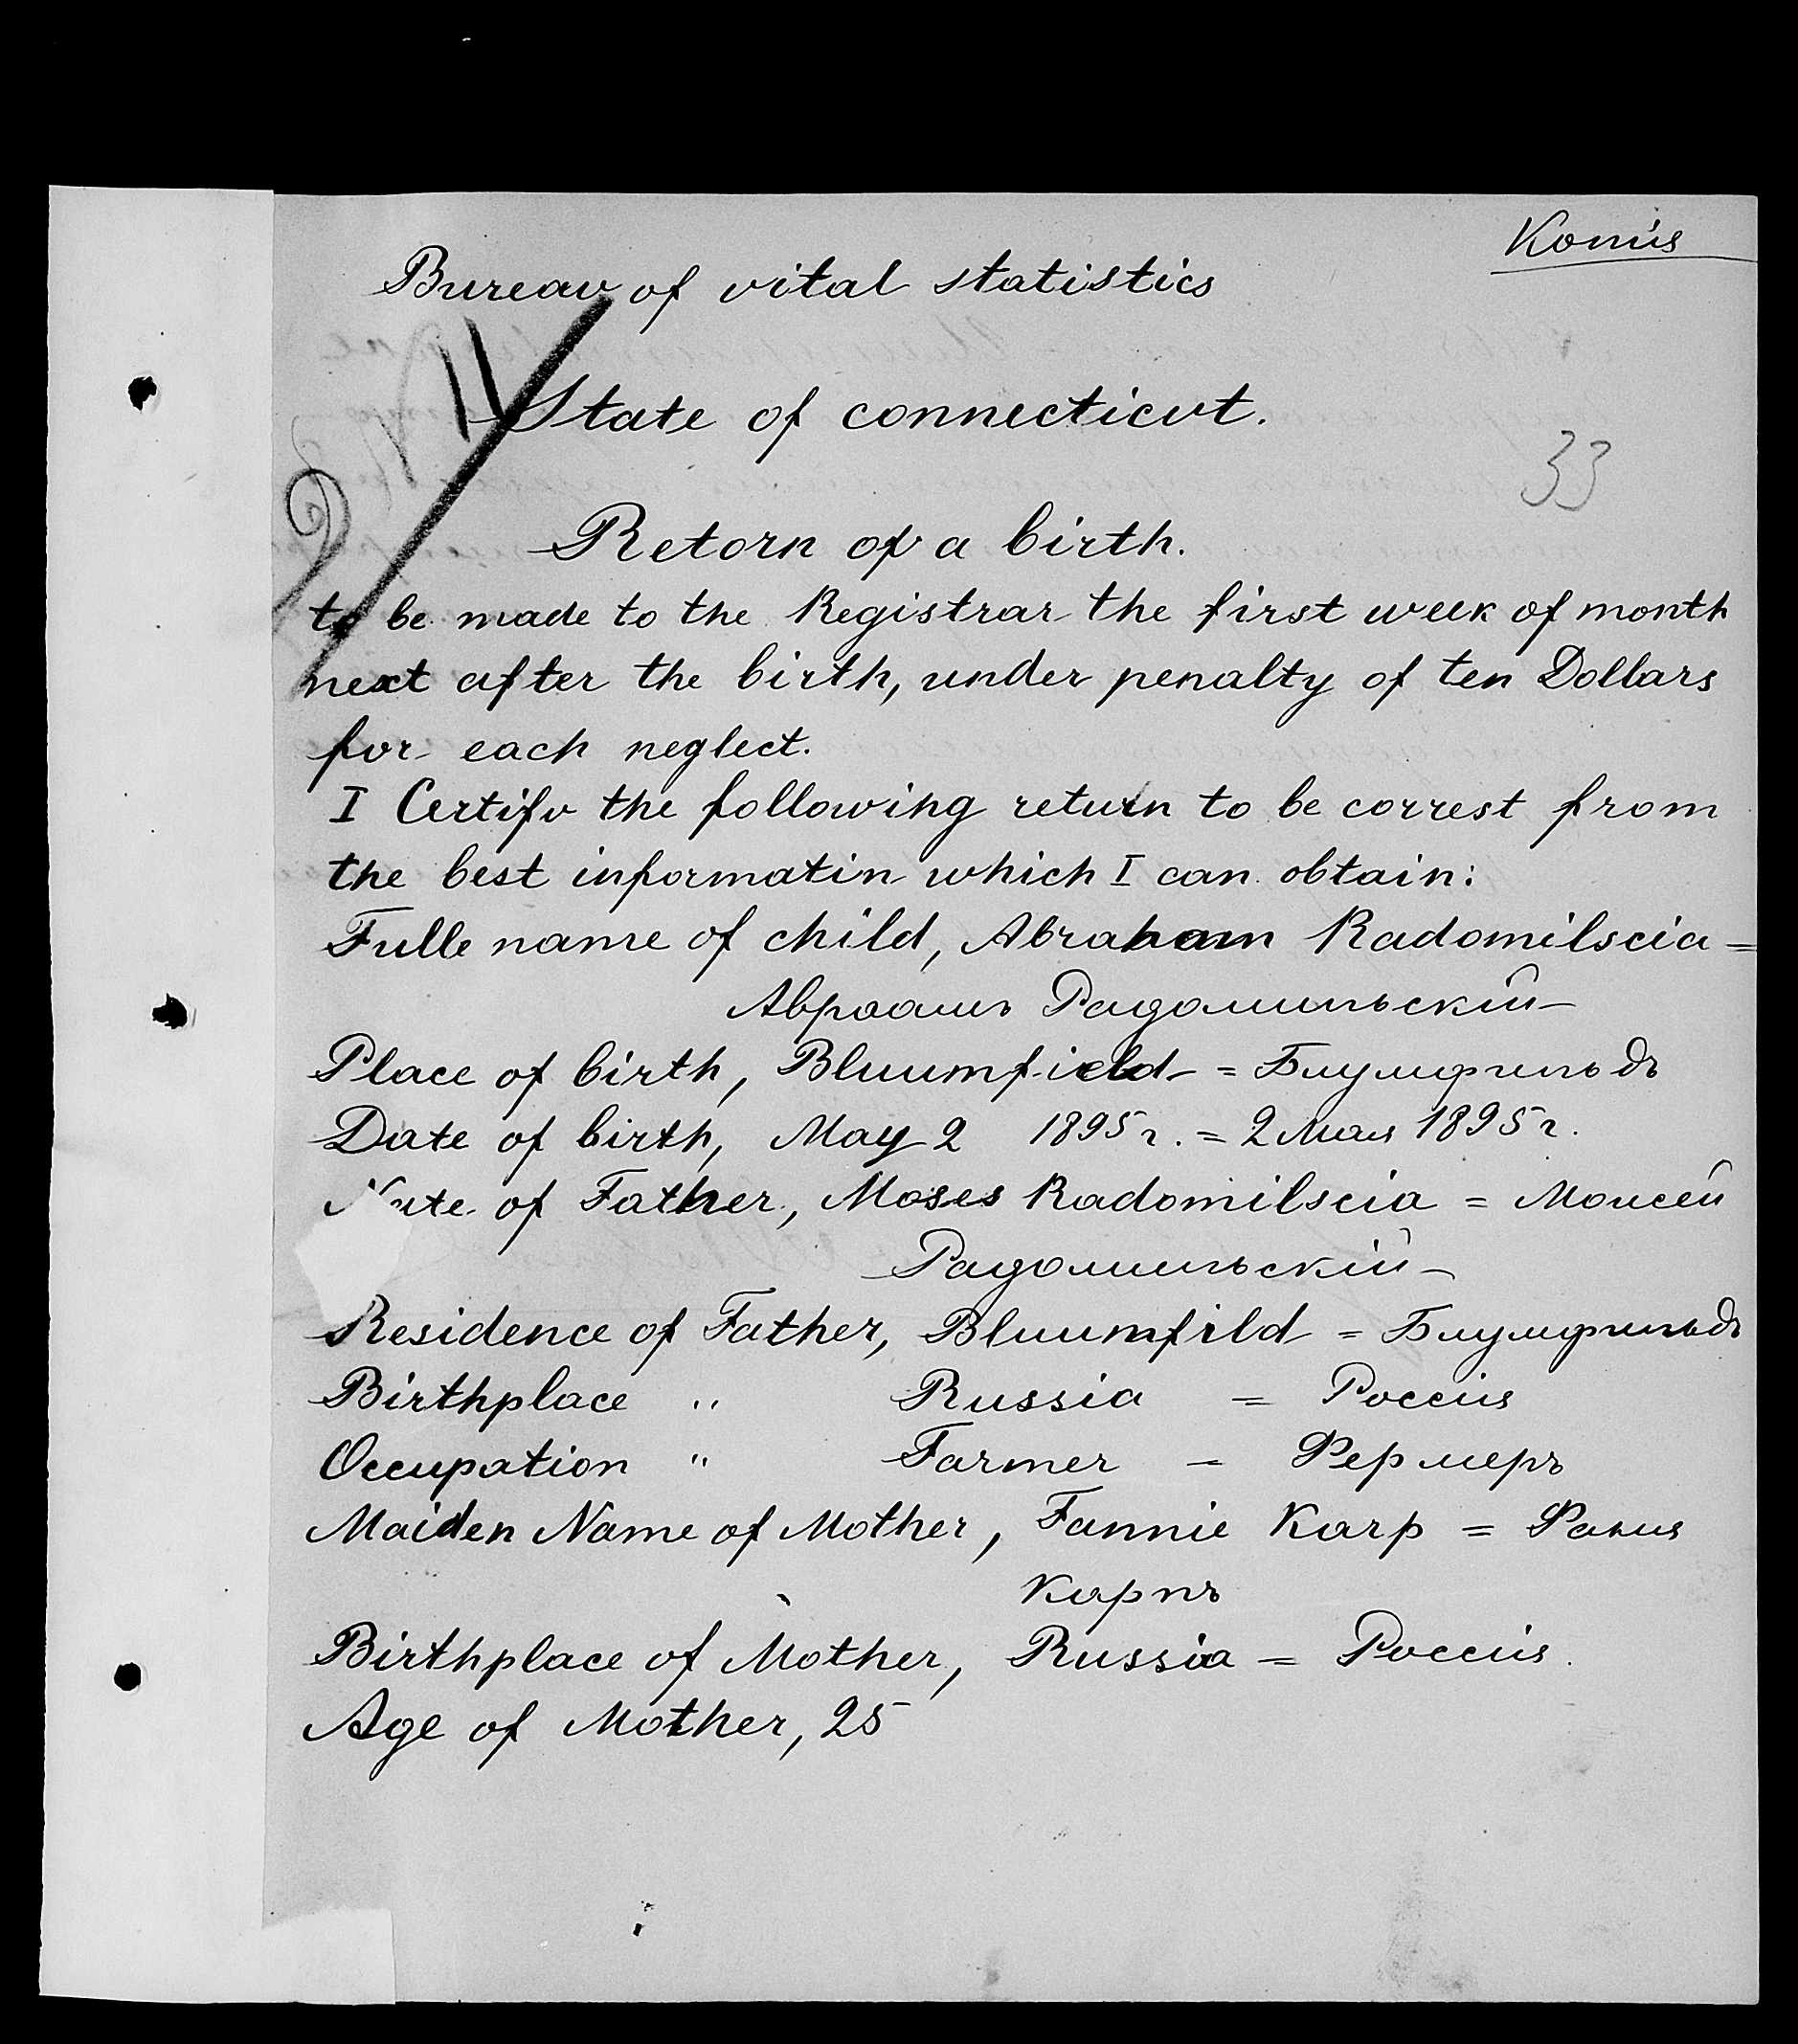 Копія
Bureau of vital statistics
State of connecticut.
33
Retorn of a birth.
to be made to the Registrar the first week of month
next after the birth, under penalty of ten Dollars
for each neglect.
I Certifv the following return to be correst from
the best informatin which I can obtain:
Fulle name of child, Abraham Radomilscia =
Авраамъ Радомильскій
Place of birth, Bluumfield = Блумфильдъ
Date of birth, May 2 1895 г. = 2 Мая 1895 г.
of Father, Moses Radomilscia = Моисей
Радомильскій
Residence of Father, Bluumfild = Блумфильдъ
Birthplace " Russia = Россія
Occupation " Farmer = Фермеръ
Maiden Name of Mother, Fannie Karp = Фания
Карпъ
Birthplace of Mother, Russia = Россія.
Age of Mother, 25